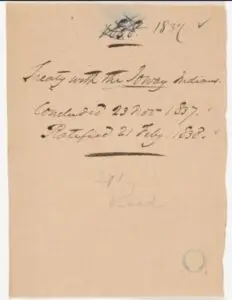 1837 ✓
Treaty with the Ioway Indians.
Concluded 23 Nov 1837.
Ratified 21 Feby 1838.